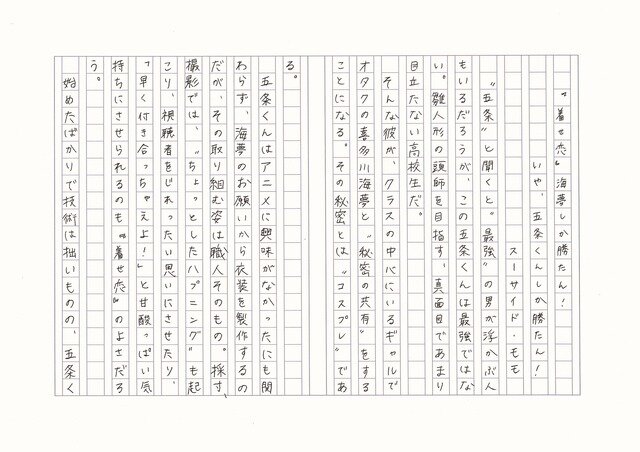 “着せ恋”海夢しか勝たん！
いや、五条くんしか勝たん！
スーサイド・モモ
“五条”と聞くと“最強”の男が浮かぶ人
もいるだろうが、この五条くんは最強ではな
い。雛人形の頭師を目指す、真面目であまり
目立たない高校生だ。
そんな彼が、クラスの中心にいるギャルで
オタクの喜多川海夢と“秘密の共有”をする
ことになる。その秘密とは“コスプレ”であ
る。
五条くんはアニメに興味がなかったにも関
わらず、海夢のお願いから衣装を製作するの
だが、その取り組む姿は職人そのもの。採寸、
撮影では、“ちょっとしたハプニング”も起
こり、視聴者をじれったい思いにさせたり、
「早く付き合っちゃえよ！」と甘酸っぱい気
持ちにさせられるのも“着せ恋”のよさだろ
う。
始めたばかりで技術は拙いものの、五条く